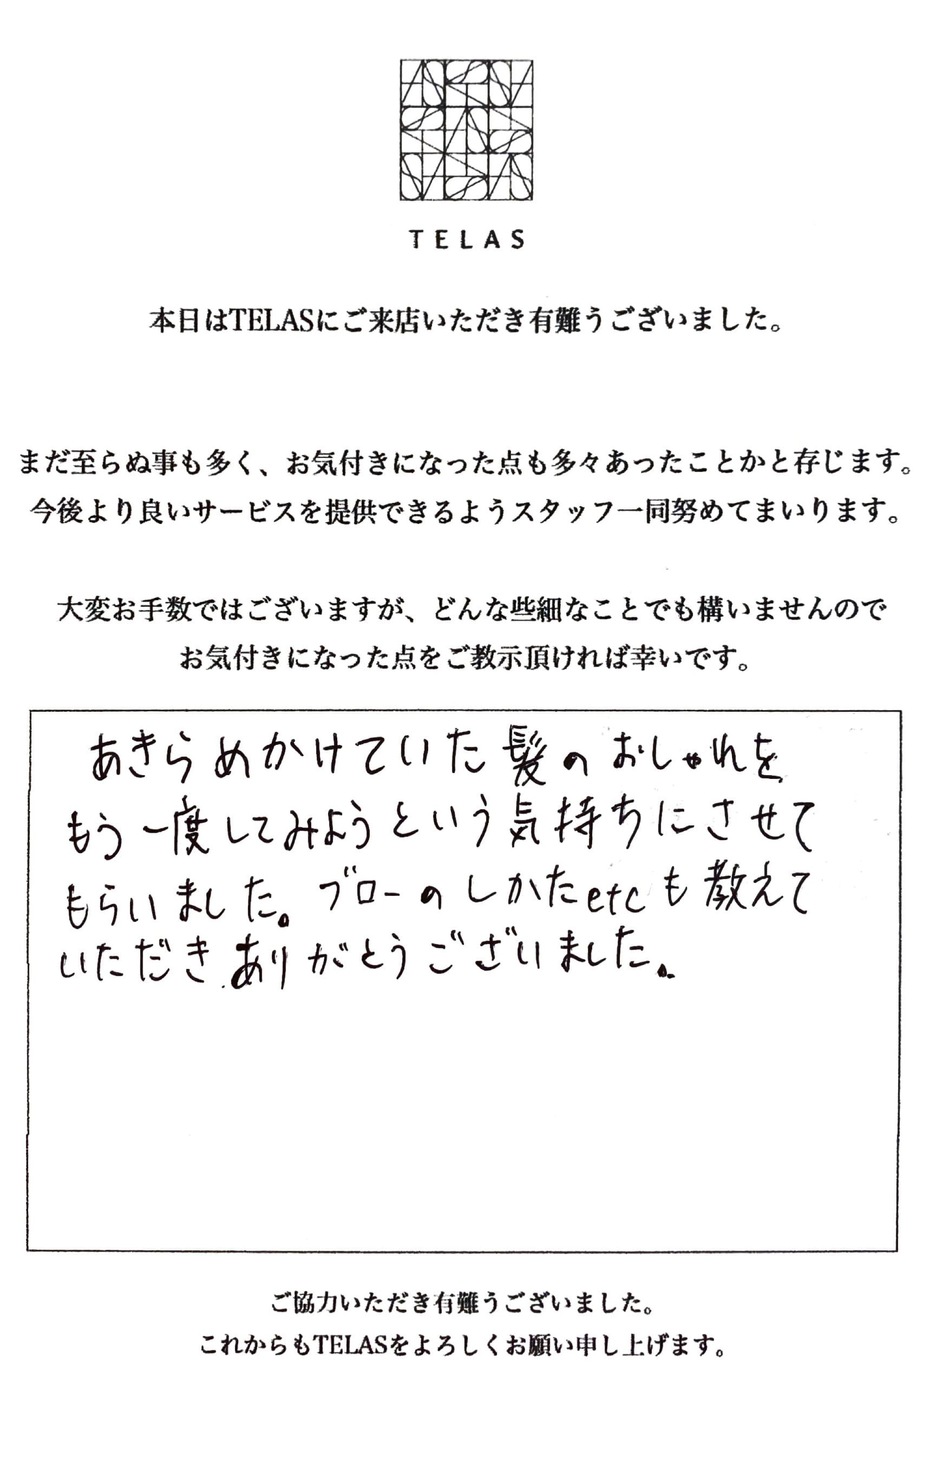 TELAS
本日はTELASにご来店いただき有難うございました。
まだ至らぬ事も多く、お気付きになった点も多々あったことかと存じます。
今後より良いサービスを提供できるようスタッフ一同努めてまいります。
大変お手数ではございますが、どんな些細なことでも構いませんので
お気付きになった点をご教示頂ければ幸いです。
あきらめかけていた髪のおしゃれを
もう一度してみようという気持ちにさせて
もらいました。ブローのしかたetcも教えて
いただきありがとうございました。
ご協力いただき有難うございました。
これからもTELASをよろしくお願い申し上げます。